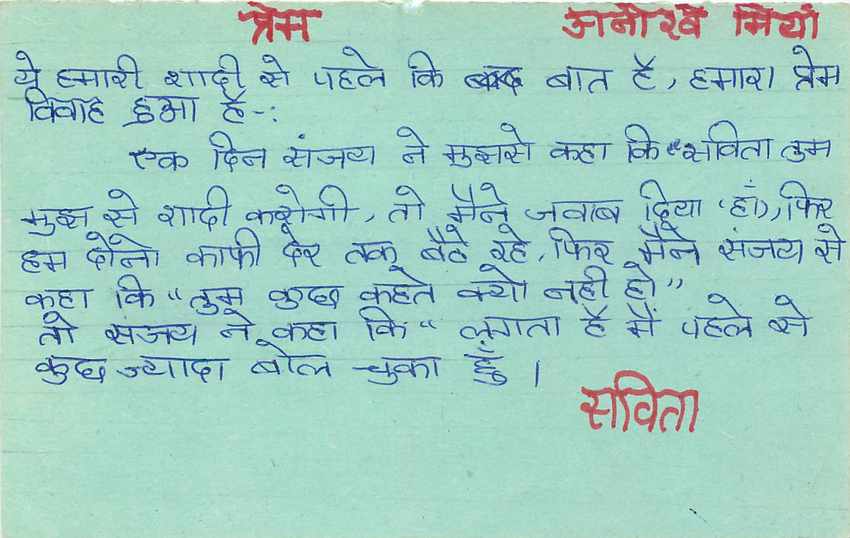 प्रेम अनोखे मियाँ
ये हमारी शादी से पहले कि बात है, हमारा प्रेम
विवाह हुआ है-:
एक दिन संजय ने मुझसे कहा कि "सविता तुम
मुझ से शादी करोगी, तो मैने जवाब दिया 'हाँ', फिर
हम दोनो काफी देर तक बैठे रहे, फिर मैने संजय से
कहा कि "तुम कुछ कहते क्यो नही हो"
तो संजय ने कहा कि "लगता है मैं पहले से
कुछ ज्यादा बोल चुका हूँ।
सविता